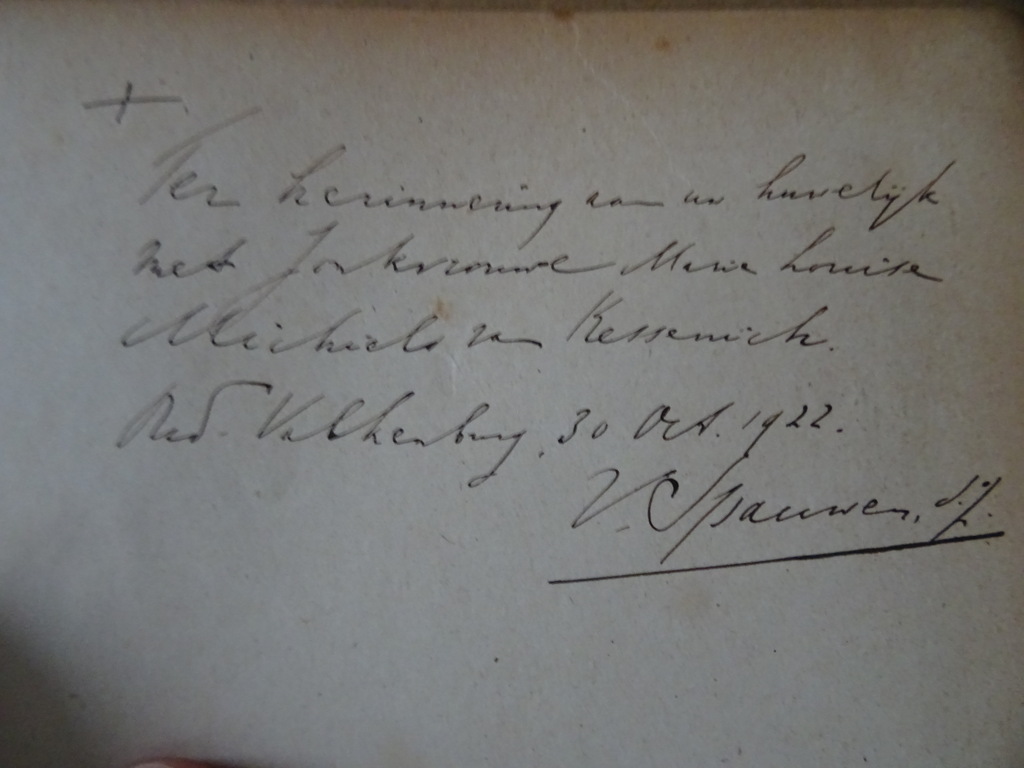 +
Ter herinnering aan uw huwelijk
met Jonkvrouwe Marie Louise
Michiels van Kessenich.
Valkenburg, 30 Oct. 1922.
V. Spauwen, s.j.